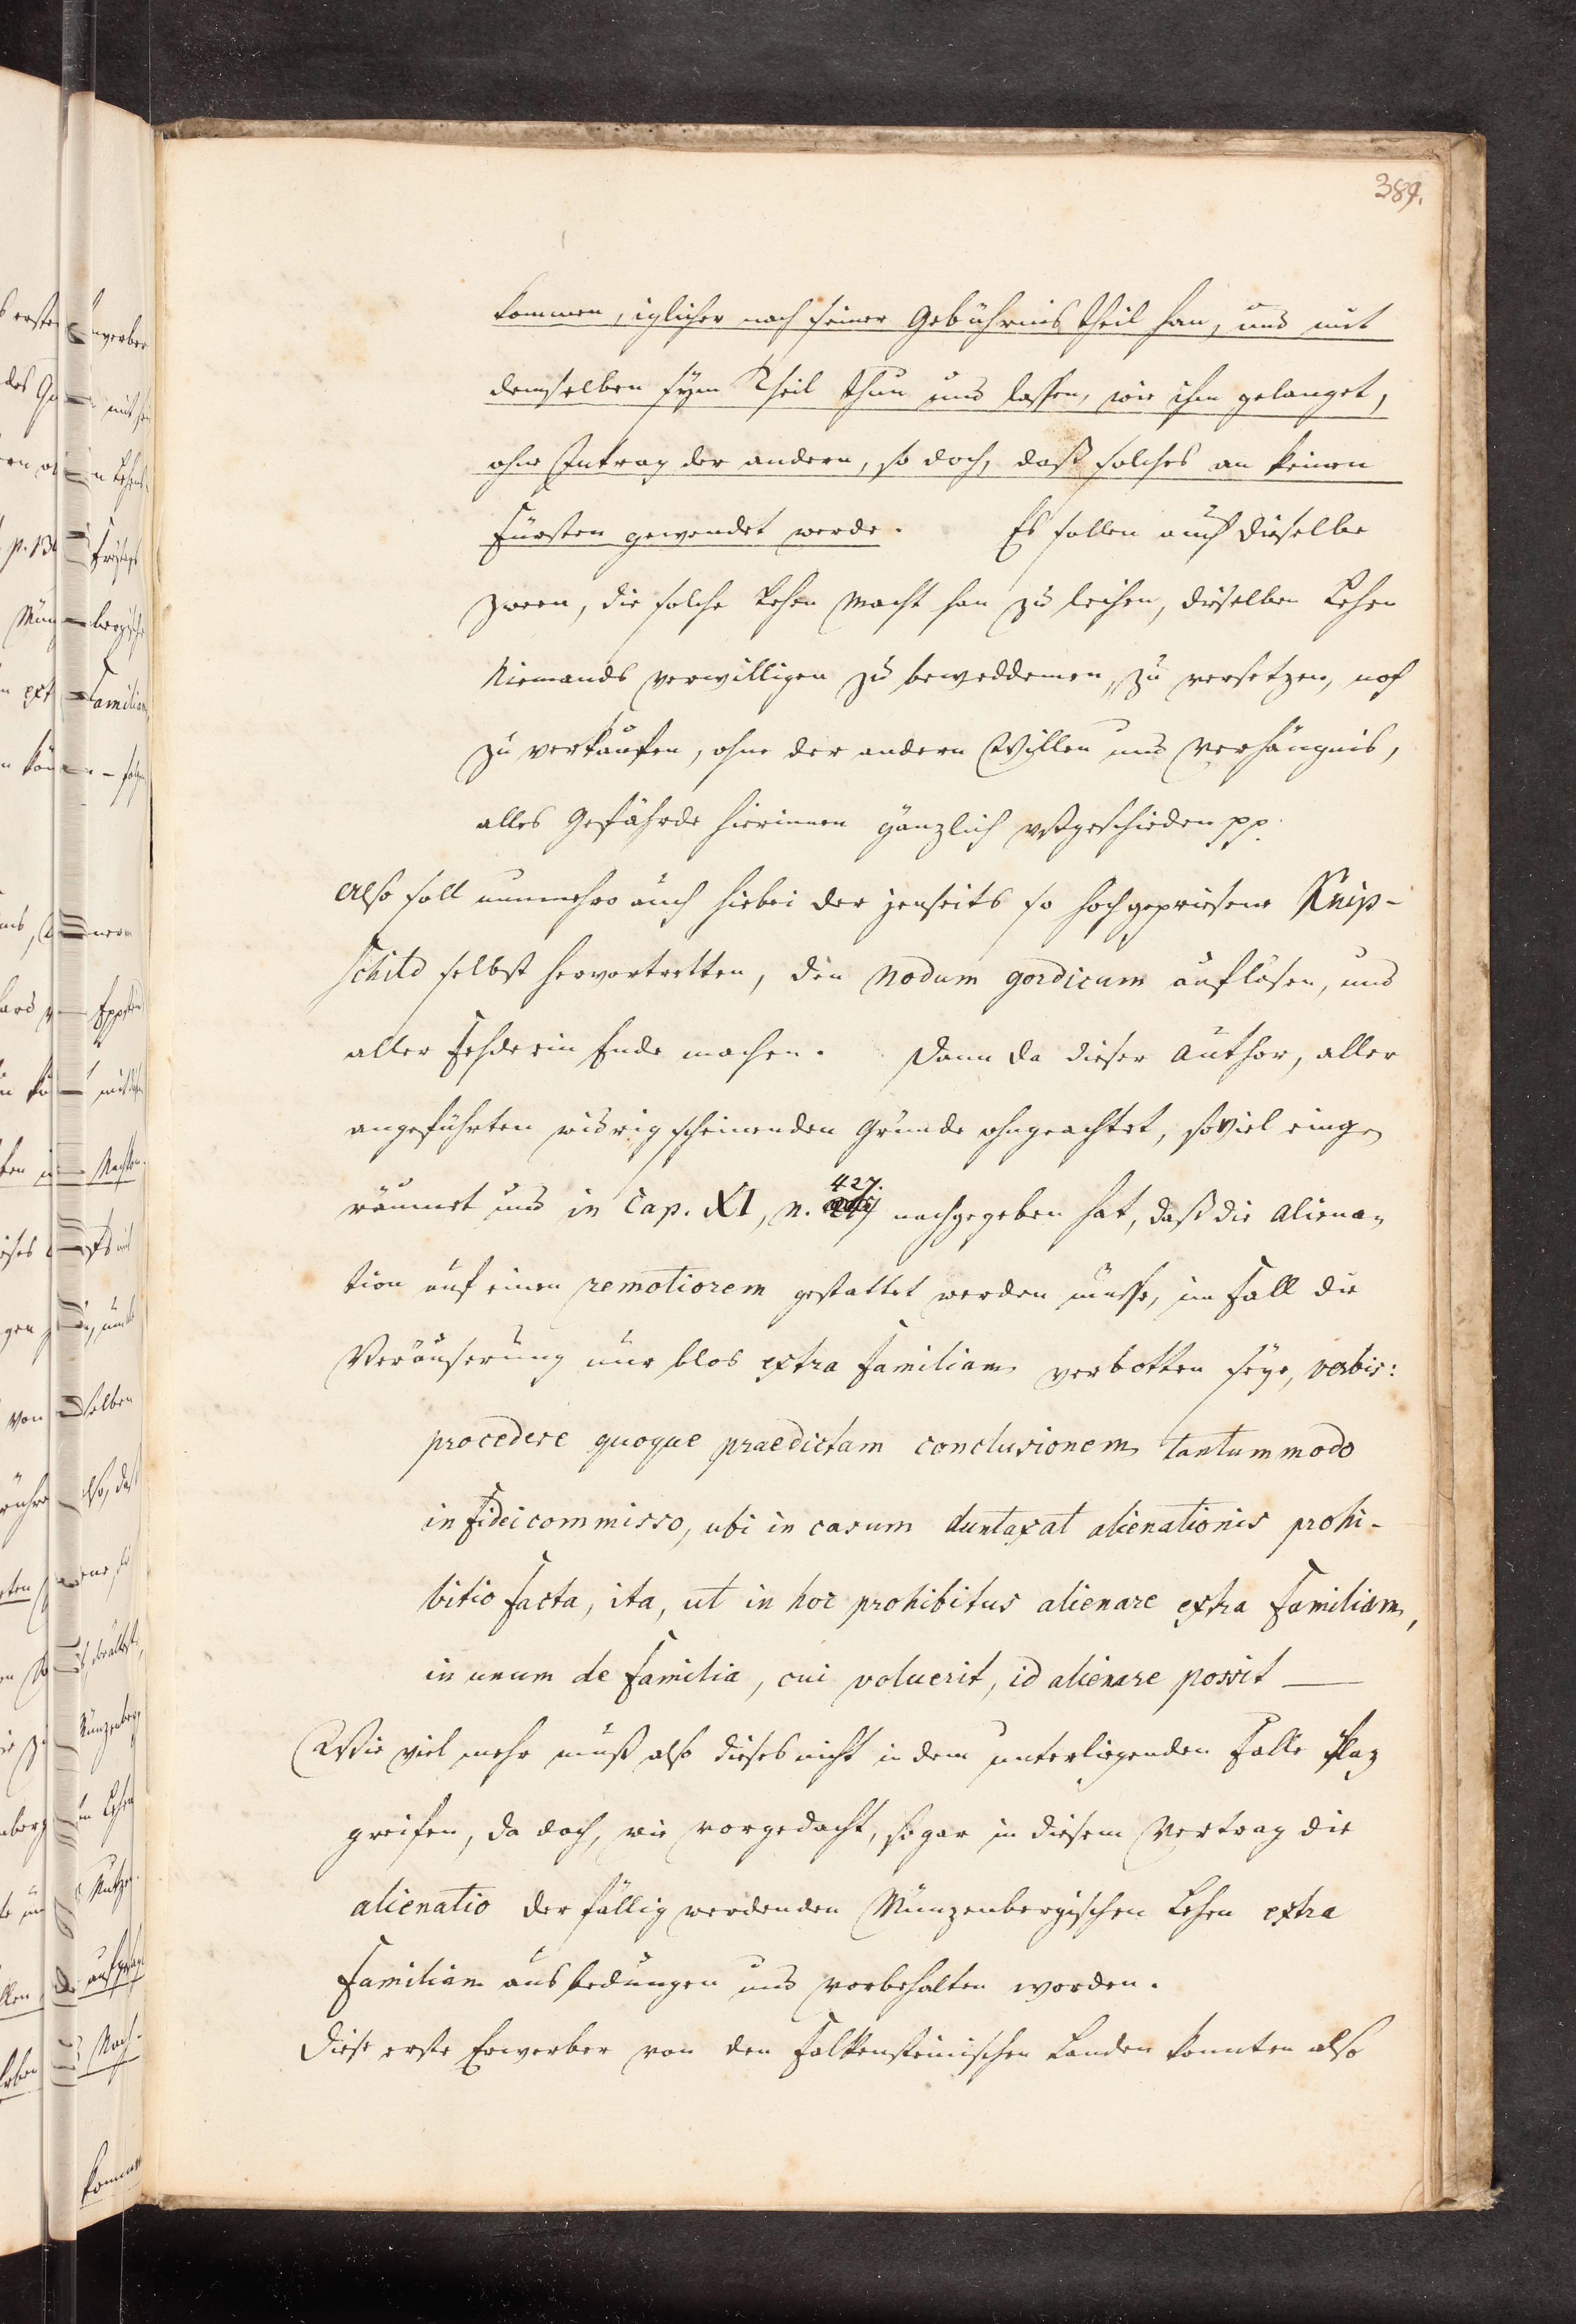 389.
kommen, iglicher nach seiner Gebührnis theil han, und mit
demselben sym Theil thun und lassen, wie ihm gelanget,
ohne Intrag der andern, so doch, daß solches an keinen
Fürsten gewendet werde. Es sollen auch dieselbe
zween, die solche Lehen Macht han zu leihen, dieselben Lehen
Niemands verwilligen zu beweddemen, zu versetzen, noch
zu verkaufen, ohne der andern Willen und Verhängnis,
alles Gefährde hierinnen gänzlich ußgeschieden pp.
Also soll nunmehro auch hiebei der jenseits so hochgepriesene Knip-
schild selbst hervortretten, den nodum gordicum auflösen, und
aller Fehde ein Ende machen. Dann da dieser Author, aller
angeführten widrig scheinenden Gründe ohngeachtet, soviel einge-
räumet und in Cap. XI, n. 427. nachgegeben hat, daß die Aliena-
tion auf einen remotiorem gestattet werden müsse, im Fall die
Veräuserung nur blos extra Familiam verbotten seye, verbis:
procedere quoque praedictam conclusionem tantummodo
in fideicommisso, ubi in casum duntaxat alienationis prohi-
bitio facta, ita, ut in hoc prohibitus alienare extra Familiam,
in unum de Familia, cui voluerit, id alienare possit —
Wie viel mehr muß also dieses nicht in dem unterliegenden Falle Plaz
greifen, da doch, wie vorgedacht, sogar in diesem Vertrag die
alienatio der fällig werdenden Münzenbergischen Lehen extra
Familiam ausbedungen und vorbehalten worden.
Diese erste Erwerber von den Falkensteinischen Landen konnten also